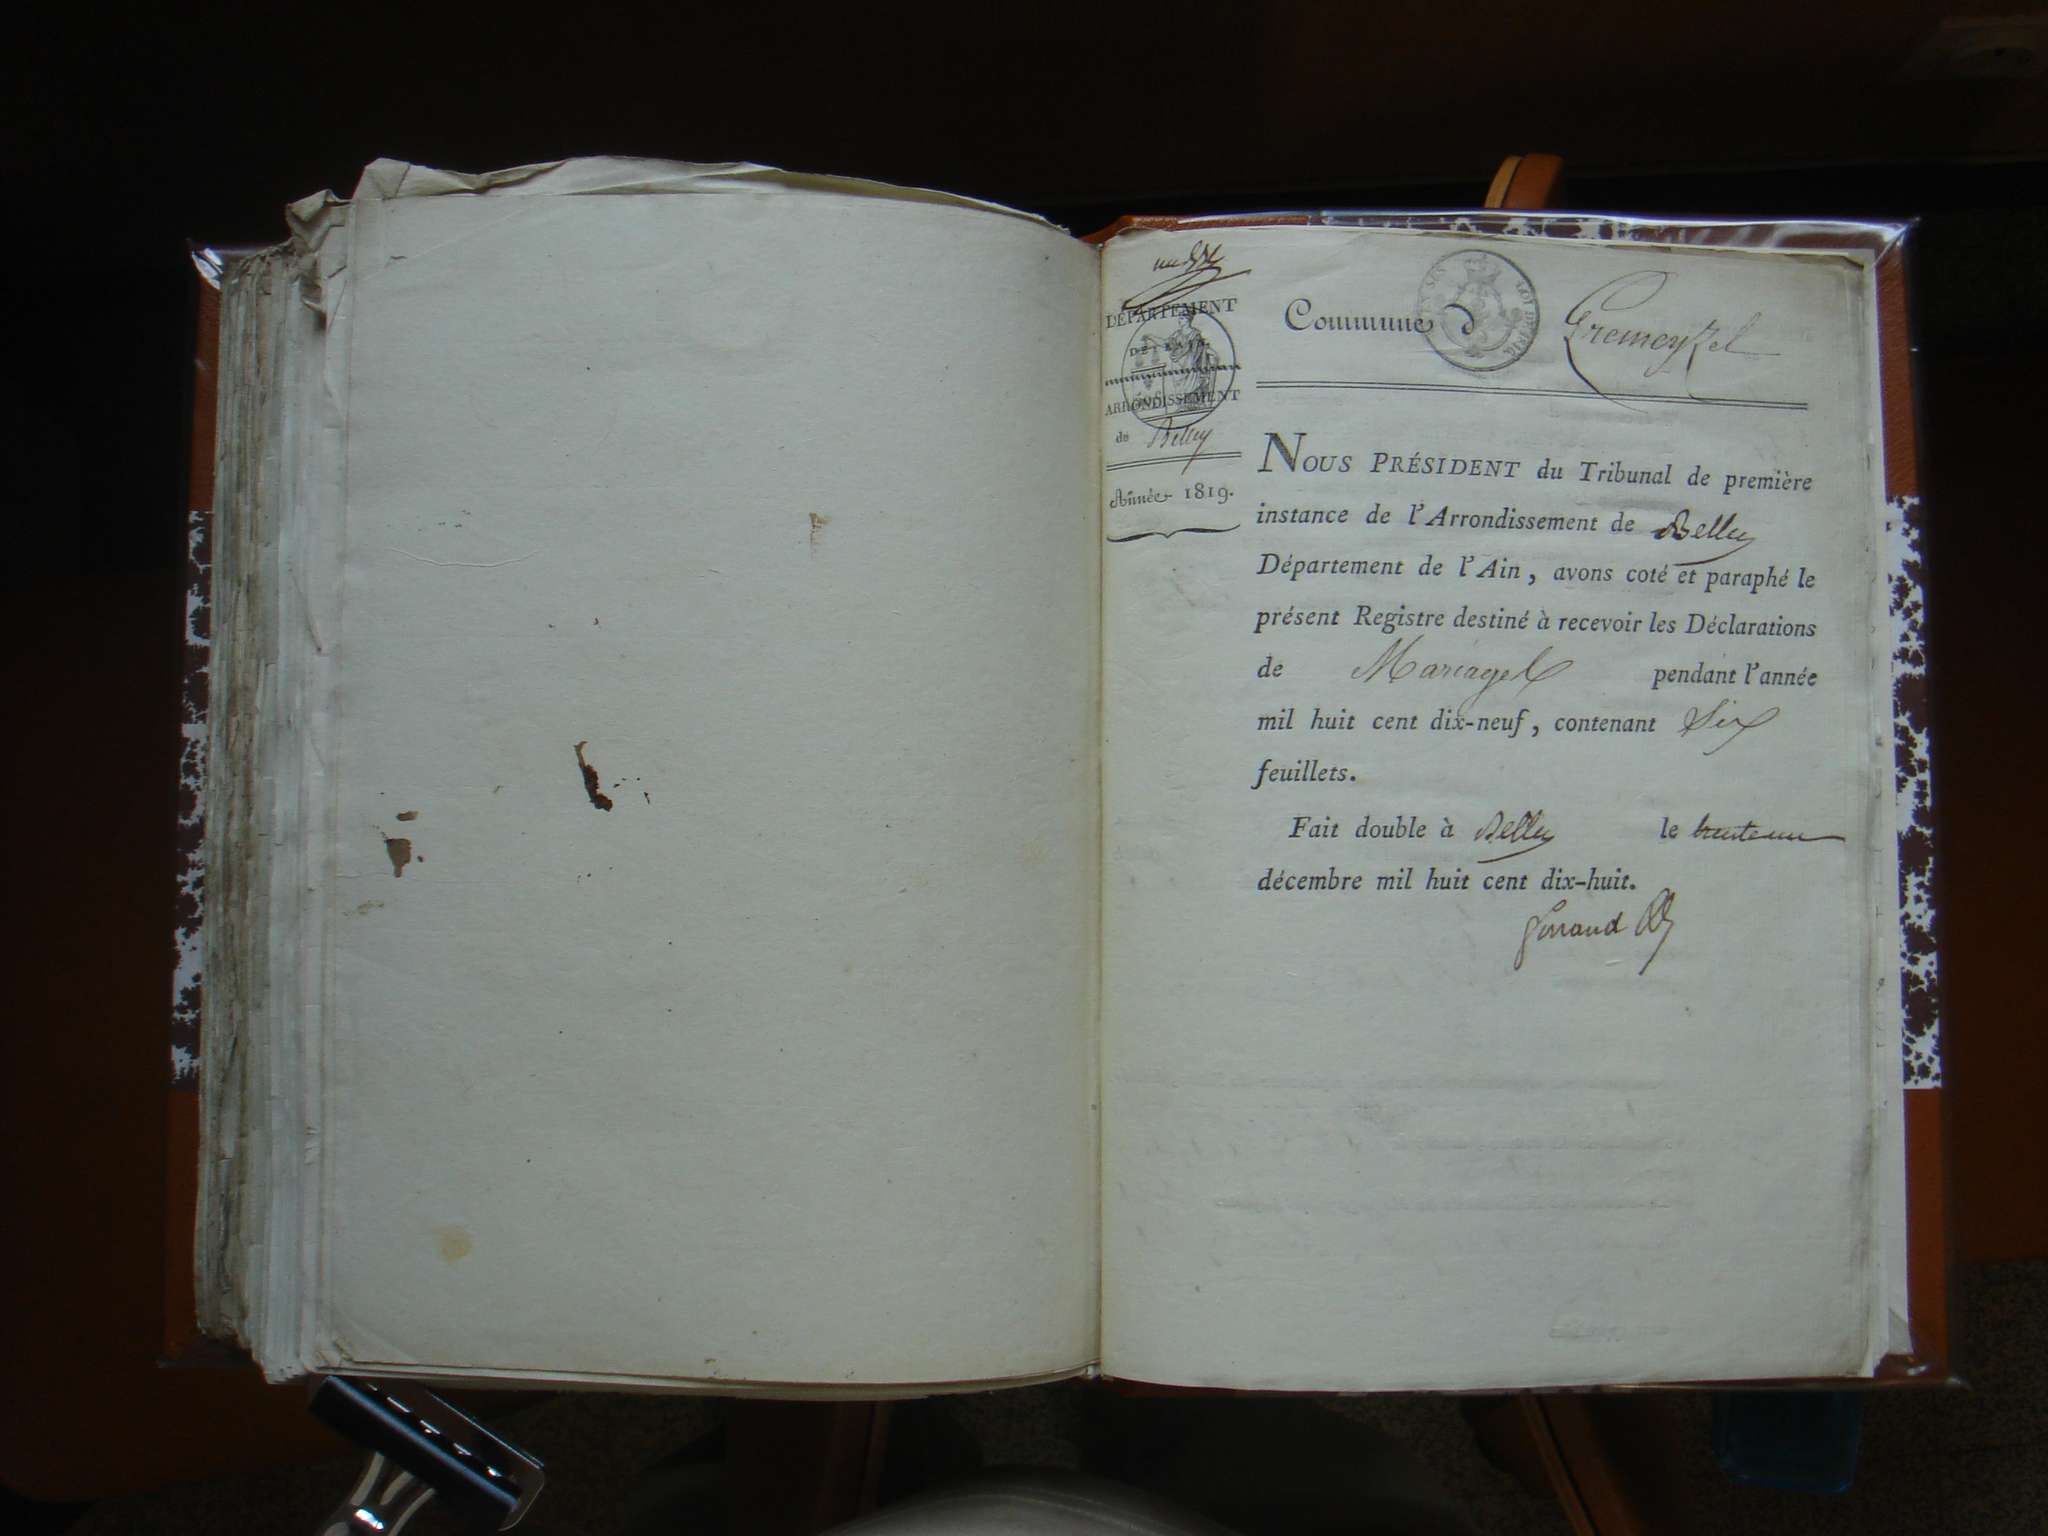 un
DÉPARTEMENT
DE L'AIN.
ARRONDISSEMENT
de Belley
Année 1819.
Commune d
NOUS PRÉSIDENT du Tribunal de première
instance de l'Arrondissement de Belley
Département de l'Ain, avons coté et paraphé le
présent Registre destiné à recevoir les Déclarations
de Mariages pendant l'année
mil huit cent dix-neuf, contenant Six
feuillets.
Fait double à Belley le trente un
décembre mil huit cent dix-huit.